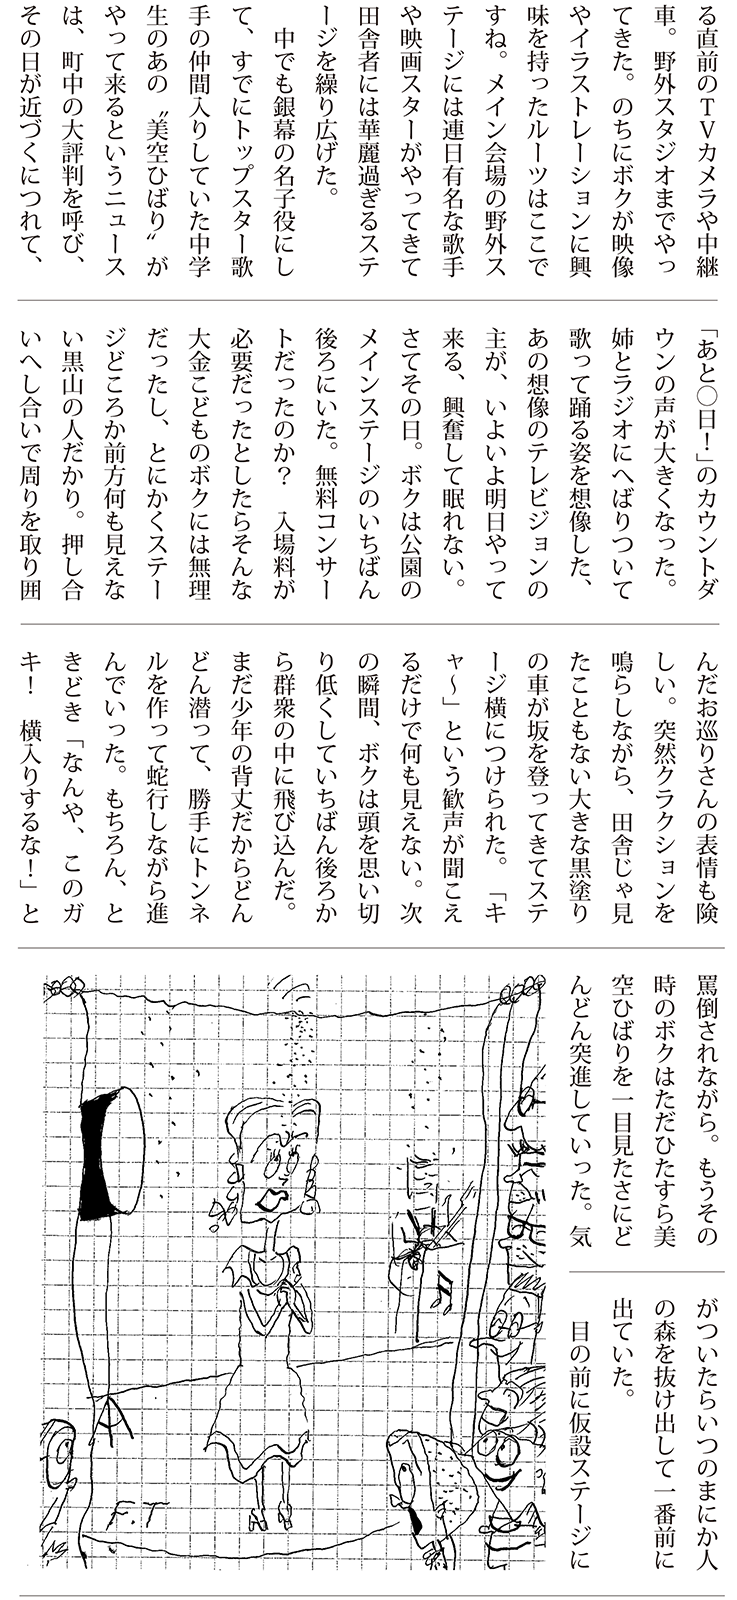 る直前のTVカメラや中継
車。野外スタジオまでやっ
てきた。のちにボクが映像
やイラストレーションに興
味を持ったルーツはここで
すね。メイン会場の野外ス
テージには連日有名な歌手
や映画スターがやってきて
田舎者には華麗過ぎるステ
ージを繰り広げた。
　中でも銀幕の名子役にし
て、すでにトップスター歌
手の仲間入りしていた中学
生のあの〝美空ひばり〟が
やって来るというニュース
は、町中の大評判を呼び、
その日が近づくにつれて、
「あと〇日！」のカウントダ
ウンの声が大きくなった。
姉とラジオにへばりついて
歌って踊る姿を想像した、
あの想像のテレビジョンの
主が、いよいよ明日やって
来る、興奮して眠れない。
さてその日。ボクは公園の
メインステージのいちばん
後ろにいた。無料コンサー
トだったのか？　入場料が
必要だったとしたらそんな
大金こどものボクには無理
だったし、とにかくステー
ジどころか前方何も見えな
い黒山の人だかり。押し合
いへし合いで周りを取り囲
んだお巡りさんの表情も険
しい。突然クラクションを
鳴らしながら、田舎じゃ見
たこともない大きな黒塗り
の車が坂を登ってきてステ
ージ横につけられた。「キ
ャ～」という歓声が聞こえ
るだけで何も見えない。次
の瞬間、ボクは頭を思い切
り低くしていちばん後ろか
ら群衆の中に飛び込んだ。
まだ少年の背丈だからどん
どん潜って、勝手にトンネ
ルを作って蛇行しながら進
んでいった。もちろん、と
きどき「なんや、このガ
キ！　横入りするな！」と
罵倒されながら。もうその
時のボクはただひたすら美
空ひばりを一目見たさにど
んどん突進していった。気
がついたらいつのまにか人
の森を抜け出して一番前に
出ていた。
　目の前に仮設ステージに
F.T